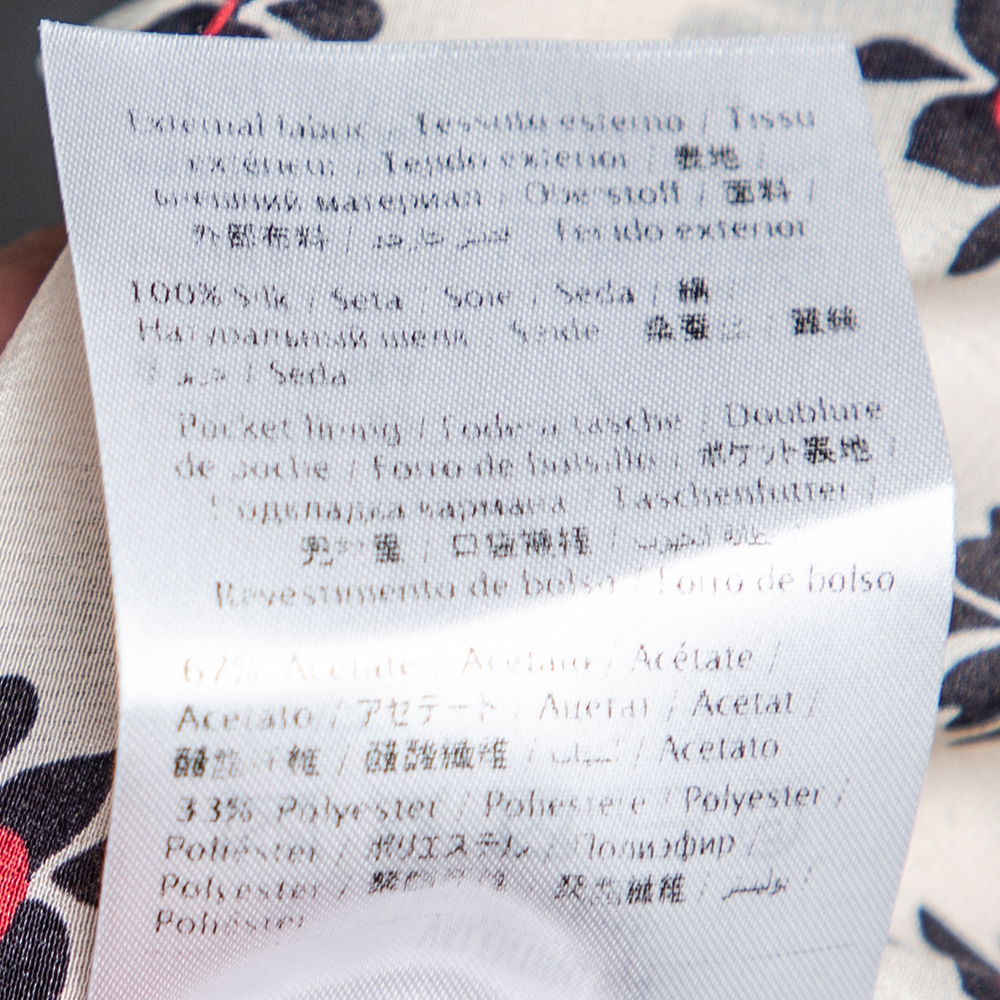 External fabric / Tessuto esterno / Tissu
extérieur / Tejido exterior / 表地 /
Внешний материал / Oberstoff / 面料 /
外部布料 / قماش خارجي / Tecido exterior
100% Silk / Seta / Soie / Seda / 絹 /
Натуральный шелк / Seide / 桑蚕丝 / 蠶絲
/ حرير / Seda
Pocket lining / Fodera tasche / Doublure
de poche / Forro de bolsillo / ポケット裏地 /
Подкладка кармана / Taschenfutter /
口袋 / بطانة الجيوب /
Revestimento de bolso / Forro de bolso
67% Acetate / Acetato / Acétate /
Acetato / アセテート / Ацетат / Acetat /
醋酯纤维 / 醋酸纖維 / أسيتات / Acetato
33% Polyester / Poliestere / Polyester /
Poliéster / ポリエステル / Полиэфир /
Polyester / 聚酯纤维 / 聚酯纖維 / بوليستر /
Poliéster